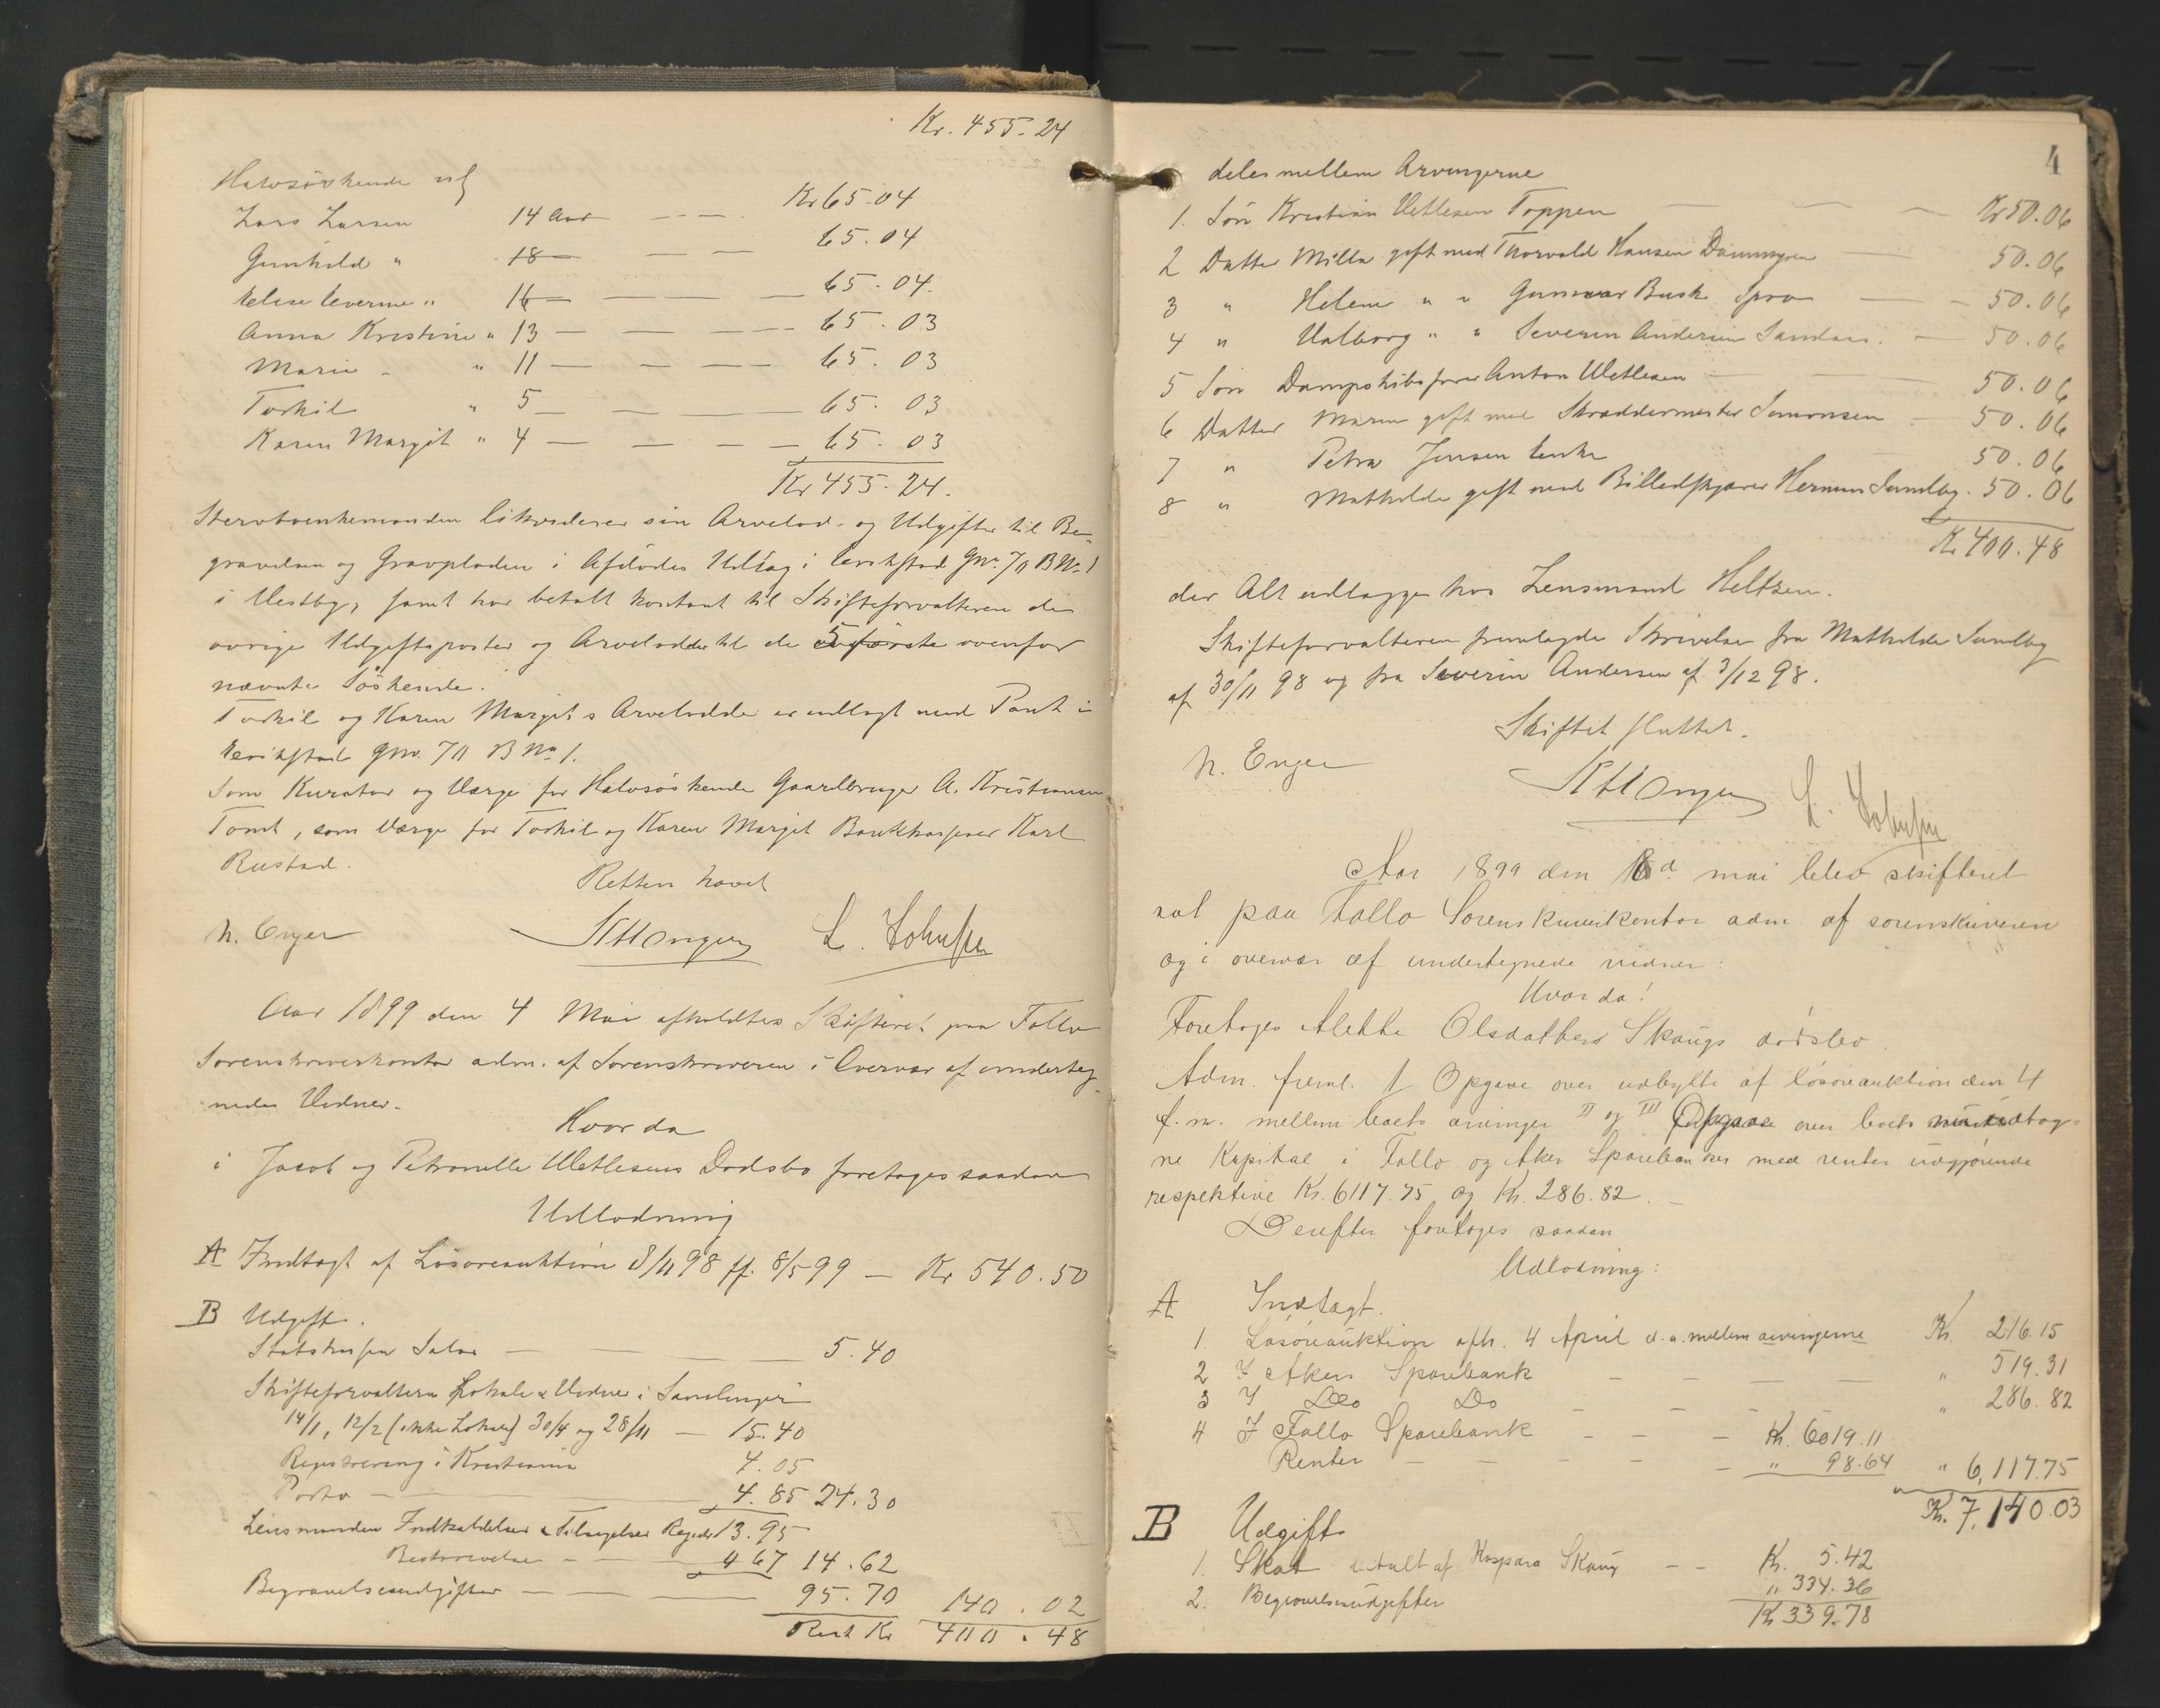 Kr. 455.24
Halvsøskende
Lars Larsen 14 Aar — Kr 65.04
Gunhild " 18 — 65.04
" 16 — 65.04
Anna Kristine " 13 — 65.03
Marie " 11 — 65.03
Torkil " 5 — 65.03
Karen Margit " 4 — 65.03
Kr 455.24.
Stervboenkemanden likviderer sin Arvelod og Udgifter til Be-
gravelsen og Gravpladsen i Afdødes Udlæg i Gno. 70 BNo 1
i Vestby, samt har betalt kontant til Skifteforvalteren de
øvrige Udgiftsposter og Arvelodder til de 5 første ovenfor
nævnte Søskende.
Torkil og Karen Margits Arvelodder er udlagt med Pant i
Gno. 70 BNo 1.
Som Kurator og Værge for Halvsøskende Gaardbruger A. Kristiansen
Tomt, som Værge for Torkil og Karen Margit Bankkasserer Karl
Rustad.
Retten hævet
N. Enger L. Johnsen
Aar 1899 den 4 Mai afholdtes Skifteret paa Follo
Sorenskriverkontor adm. af Sorenskriveren i Overvær af underteg-
nede Vidner.
Hvorda
i Jacob og Petronelle Vetlesens Dødsbo foretoges saadan
Udlodning
A Indtægt af Løsøreauktion 8/11 98 ff. 8/5 99 — Kr 540.50
B Udgift.
Statskassen Salær — 5.40
Skifteforvalteren Lokale & Vidner i Samlinger
14/1, 12/2 (ikke Lokale) 30/4 og 28/11 — 15.40
Registrering i Kristiania 4.05
Porto — 4.85 24.30
Lensmanden Indkaldelser & Tilsigelser 13.95
Beskrivelse — 4 67 14.62
Begravelsesudgifter — 95.70 140.02
Rest Kr 400.48
4
deles mellem Arvingerne
1. Søn Kristian Vetlesen Toppen — Kr 50.06
2 Datter Milla gift med Thorvald Hansen — 50.06
3 " Helene " " Gunnar Busk — 50.06
4 " Valborg " " Severin Andersen — 50.06
5 Søn Dampskibsfører Anton Vetlesen — 50.06
6 Datter Maren gift med Skræddermester Simonsen — 50.06
7 " Petra Jensen Enke 50.06
8 " Mathilde gift med Billedskjærer Herman Sundby. 50.06
Kr 400.48
der Alt udlægges hos Lensmand Heltzen.
Skifteforvalteren fremlagde Skrivelse fra Mathilde Sundby
af 30/11 98 og fra Severin Andersen af 3/12 98.
Skiftet sluttet.
N. Enger L. Johnsen
Aar 1899 den d. mai blev skifteret
sat paa Follo Sorenskriverkontor adm. af sorenskriveren
og i overvær af undertegnede vidner:
Hvorda!
Foretoges Alethe Olsdatters Skaugs dødsbo.
Adm. freml. I Opgave over udbytte af løsøreauktion den 4
f. m. mellem boets arvinger II og III Opgave over boets
ne Kapital i Follo og Aker Sparebanker med renter udgjørende
respektive Kr. 6117.75 og Kr. 286.82. —
Derefter foretoges saadan
Udlodning:
A Indtægt.
1. Løsøreauktion afh. 4 April d. a. mellem arvingerne Kr. 216.15
2 I Akers Sparebank — " 519.31
3 I Do Do — " 286.82
4 I Follo Sparebank — Kr. 6019.11
Renter — " 98.64 " 6,117.75
Kr. 7,140.03
B Udgift
1. Skat betalt af Kaspara Skaug — Kr. 5.42
2. Begravelsesudgifter " 334.36
Kr 339.78